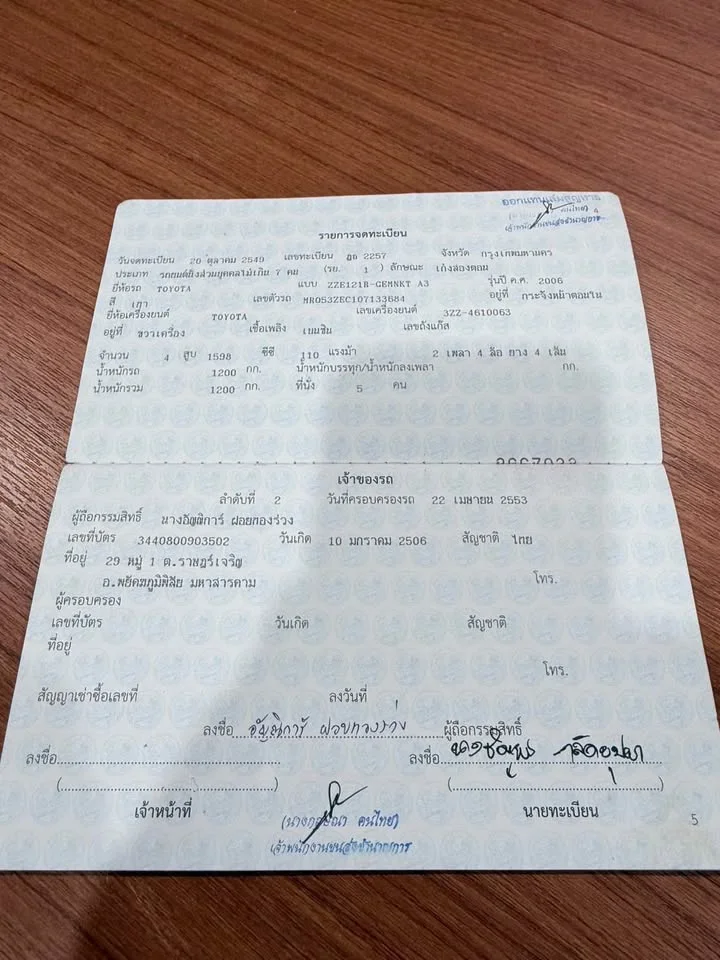 ออกแทนเล่มชำรุด
รายการจดทะเบียน
วันจดทะเบียน 20 ตุลาคม 2549 เลขทะเบียน 2257 จังหวัด กรุงเทพมหานคร
ประเภท รถยนต์นั่งส่วนบุคคลไม่เกิน 7 คน (รย. 1 ) ลักษณะ เก๋งสองตอน
ยี่ห้อรถ TOYOTA แบบ ZZE121R-GEMNKT A3 รุ่นปี ค.ศ. 2006
สี เทา เลขตัวรถ MR053ZEC107133684 อยู่ที่ กระจังหน้าตอนใน
ยี่ห้อเครื่องยนต์ TOYOTA เลขเครื่องยนต์ 3ZZ-4610063
อยู่ที่ ขวาเครื่อง เชื้อเพลิง เบนซิน เลขถังแก๊ส
จำนวน 4 สูบ 1598 ซีซี 110 แรงม้า 2 เพลา 4 ล้อ ยาง 4 เส้น
น้ำหนักรถ 1200 กก. น้ำหนักบรรทุก/น้ำหนักลงเพลา กก.
น้ำหนักรวม 1200 กก. ที่นั่ง 5 คน
เจ้าของรถ
ลำดับที่ 2 วันที่ครอบครองรถ 22 เมษายน 2553
ผู้ถือกรรมสิทธิ์ นางอัญติการ์ ฝอยทองร่วง
เลขที่บัตร 3440800903502 วันเกิด 10 มกราคม 2506 สัญชาติ ไทย
ที่อยู่ 29 หมู่ 1 ต.ราษฎร์เจริญ
อ.พยัคฆภูมิพิสัย มหาสารคาม โทร.
ผู้ครอบครอง
เลขที่บัตร วันเกิด สัญชาติ
ที่อยู่
โทร.
สัญญาเช่าซื้อเลขที่ ลงวันที่
ลงชื่อ อัญติการ์ ฝอยทองร่วง ผู้ถือกรรมสิทธิ์
ลงชื่อ ลงชื่อ
เจ้าหน้าที่ นายทะเบียน
คนไทย)
เจ้าพนักงานขนส่งชำนาญการ
5